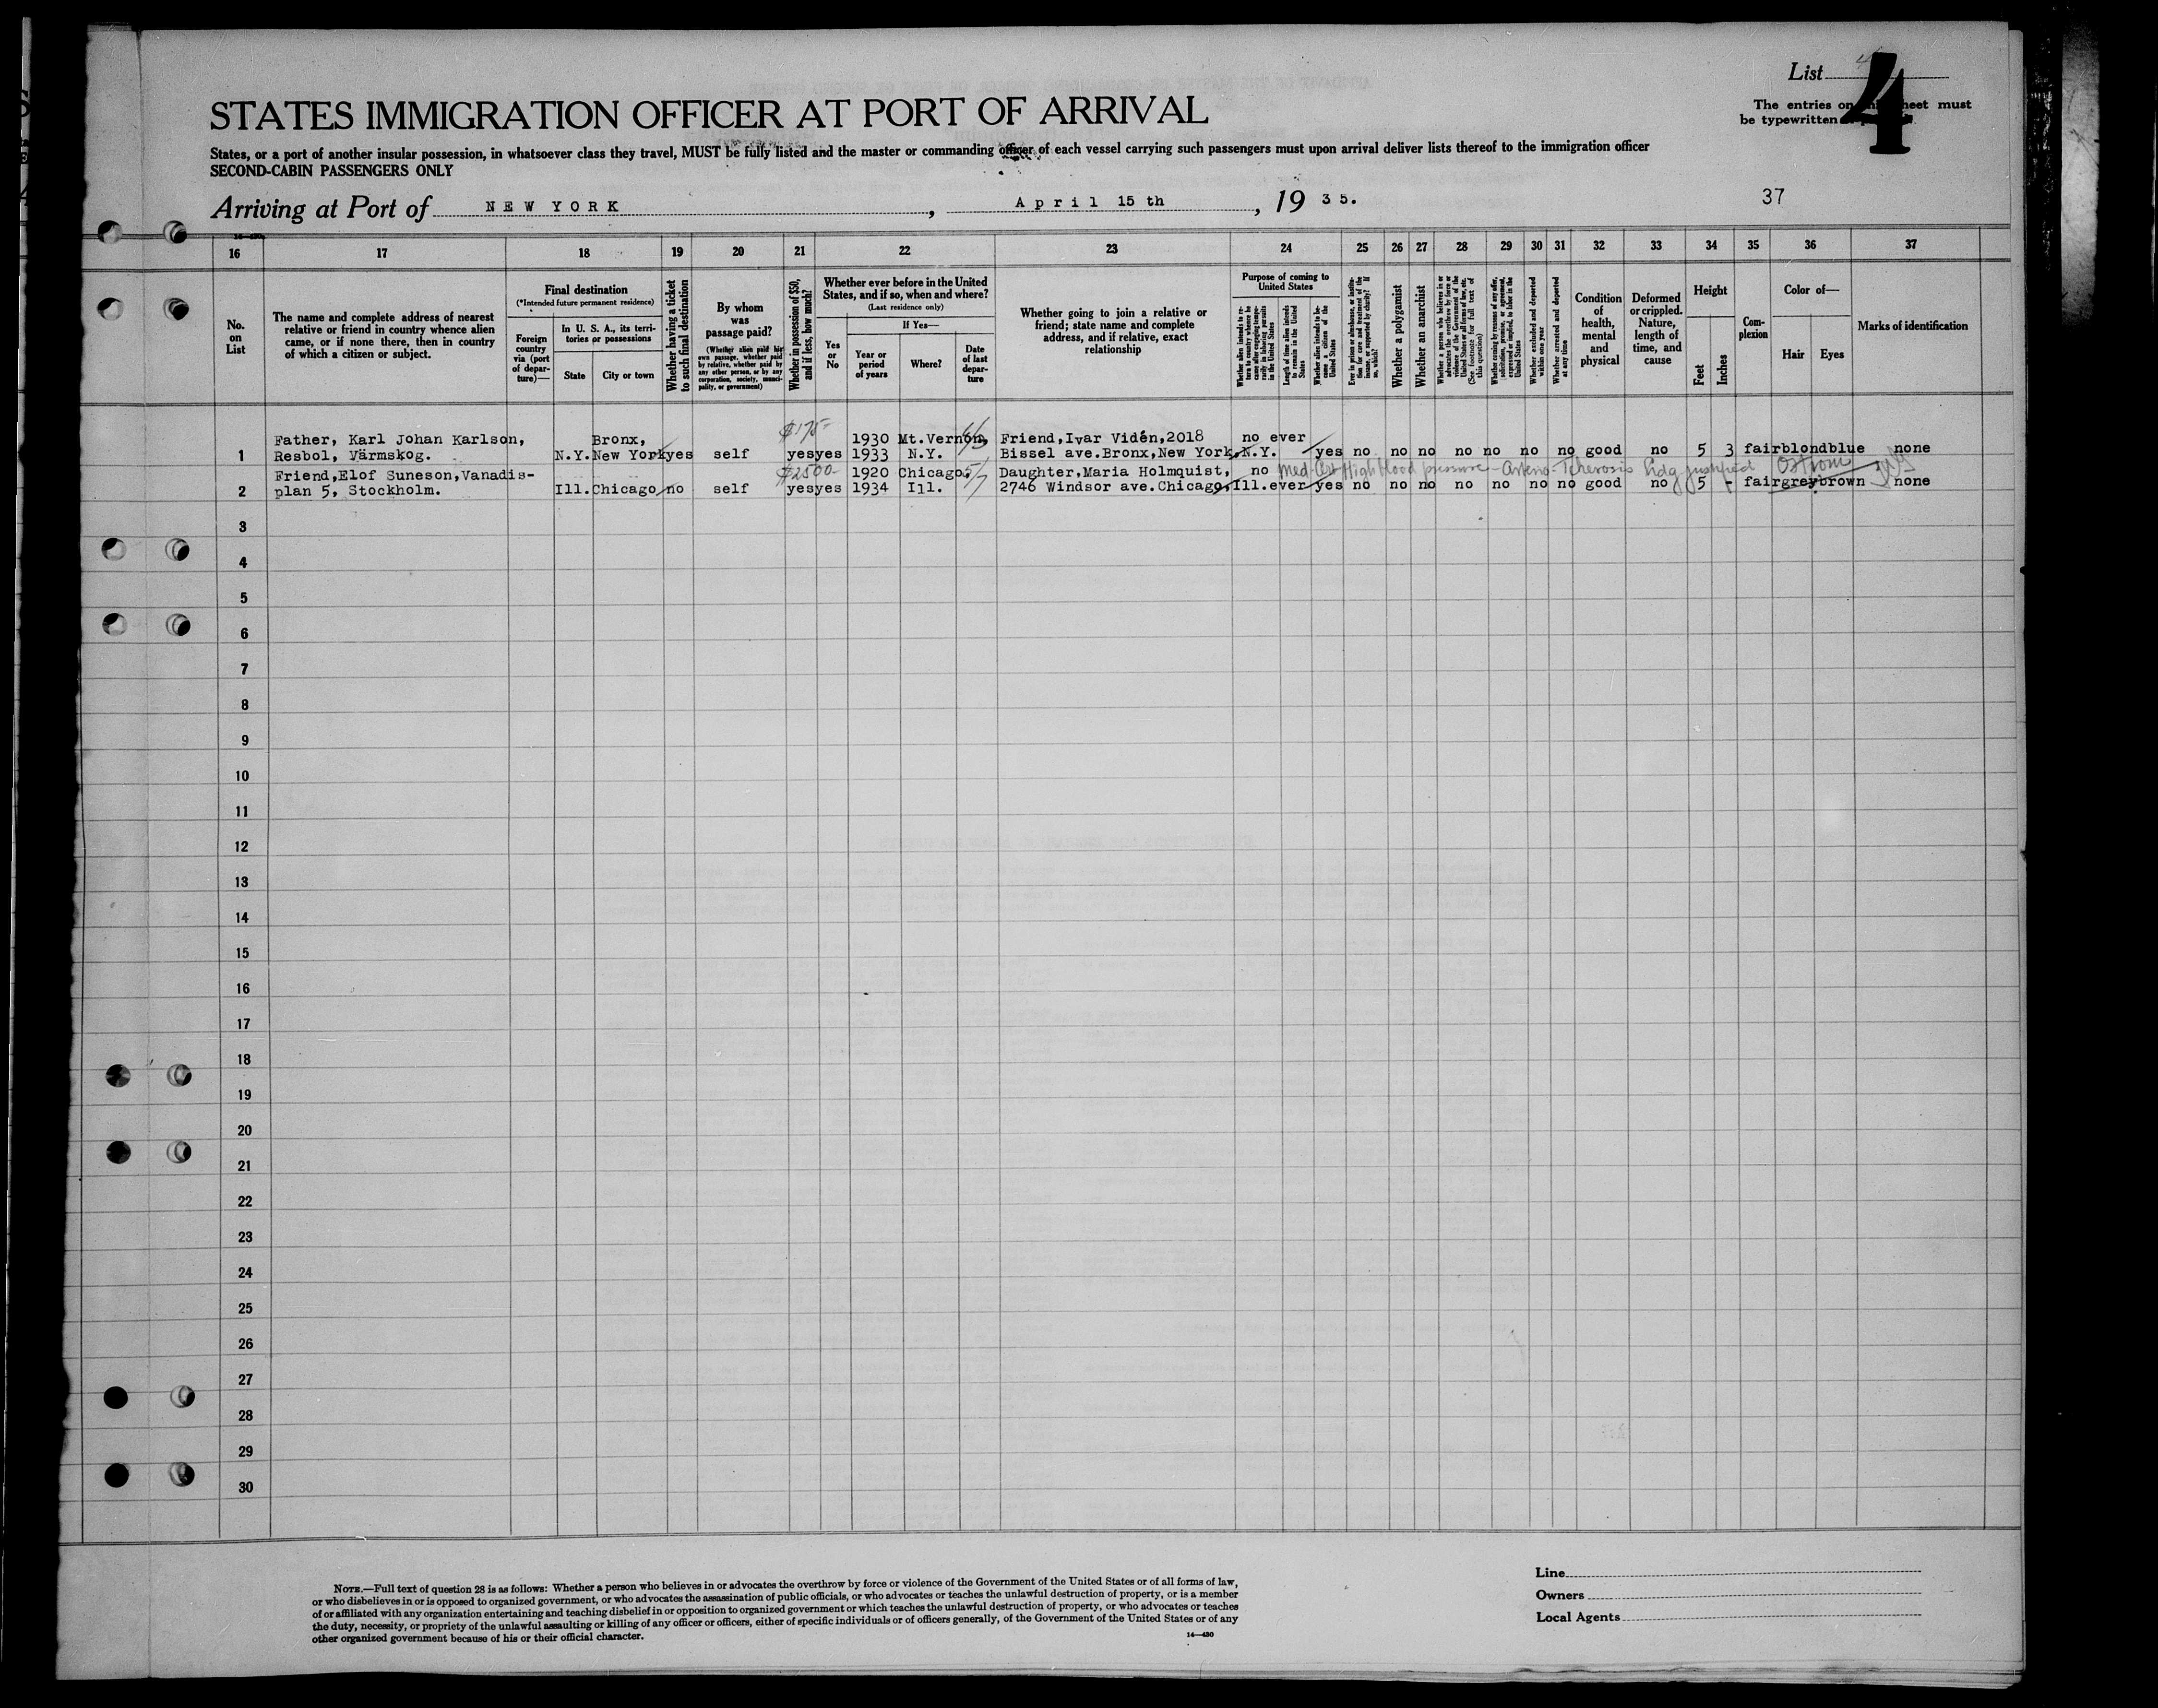 List 4
STATES IMMIGRATION OFFICER AT PORT OF ARRIVAL
The entries on sheet must
be typewritten
States, or a port of another insular possession, in whatsoever class they travel, MUST be fully listed and the master or commanding officer of each vessel carrying such passengers must upon arrival deliver lists thereof to the immigration officer
SECOND-CABIN PASSENGERS ONLY
Arriving at Port of NEW YORK, April 15th, 1935.
37
16 17 18 19 20 21 22 23 24 25 26 27 28 29 30 31 32 33 34 35 36 37
No. on List
The name and complete address of nearest relative or friend in country whence alien came, or if none there, then in country of which a citizen or subject.
Final destination
(*Intended future permanent residence)
Foreign country via (port of departure)—
In U. S. A., its territories or possessions
State
City or town
Whether having a ticket to such final destination
By whom was passage paid?
(Whether alien paid his own passage, whether paid by relative, whether paid by any other person, or by any corporation, society, municipality, or government)
Whether in possession of $50, and if less, how much?
Whether ever before in the United States, and if so, when and where?
(Last residence only)
Yes or No
If Yes—
Year or period of years
Where?
Date of last departure
Whether going to join a relative or friend; state name and complete address, and if relative, exact relationship
Purpose of coming to United States
Whether alien intends to return to country whence he came after engaging temporarily in laboring pursuits in the United States
Length of time alien intends to remain in the United States
Whether alien intends to become a citizen of the United States
Ever in prison or almshouse, or institution for care and treatment of the insane, or supported by charity? If so, which?
Whether a polygamist
Whether an anarchist
Whether a person who believes in or advocates the overthrow by force or violence of the Government of the United States or all forms of law, etc. (See footnote for full text of this question)
Whether coming by reason of any offer, solicitation, promise, or agreement, expressed or implied, to labor in the United States
Whether excluded and deported within one year
Whether arrested and deported at any time
Condition of health, mental and physical
Deformed or crippled. Nature, length of time, and cause
Height
Feet
Inches
Complexion
Color of—
Hair
Eyes
Marks of identification
$175-
Father, Karl Johan Karlson, Bronx, 1930 Mt.Vernon, Friend,Ivar Vidén,2018 no ever
1 Resbol, Värmskog. N.Y. New York yes self yes yes 1933 N.Y. Bissel ave.Bronx,New York,N.Y. yes no no no no no no no good no 5 3 fair blond blue none
Friend,Elof Suneson,Vanadis- $2500- 1920 Chicago, 5/7 Daughter,Maria Holmquist, no Med Cert High blood pressure - Arterio Hdg justified Ostrom
2 plan 5, Stockholm. Ill. Chicago no self yes yes 1934 Ill. 2746 Windsor ave.Chicago,Ill. ever yes no no no no no no no good no 5 - fair grey brown none
3
4
5
6
7
8
9
10
11
12
13
14
15
16
17
18
19
20
21
22
23
24
25
26
27
28
29
30
NOTE.—Full text of question 28 is as follows: Whether a person who believes in or advocates the overthrow by force or violence of the Government of the United States or of all forms of law,
or who disbelieves in or is opposed to organized government, or who advocates the assassination of public officials, or who advocates or teaches the unlawful destruction of property, or is a member
of or affiliated with any organization entertaining and teaching disbelief in or opposition to organized government or which teaches the unlawful destruction of property, or who advocates or teaches
the duty, necessity, or propriety of the unlawful assaulting or killing of any officer or officers, either of specific individuals or of officers generally, of the Government of the United States or of any
other organized government because of his or their official character.
14—430
Line
Owners
Local Agents